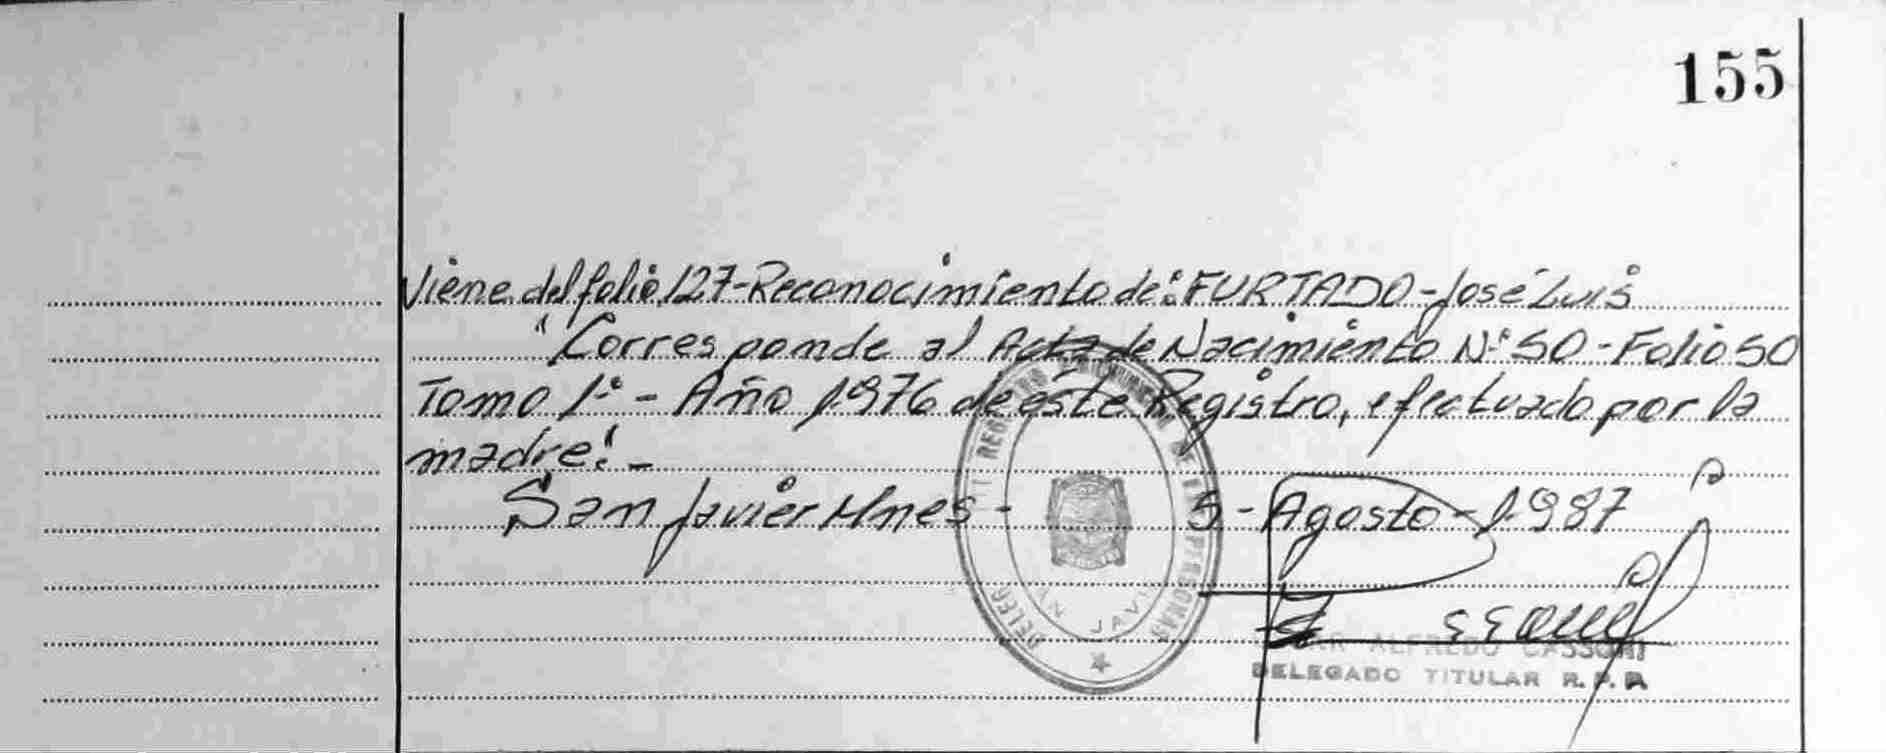 155
Viene del folio 127-Reconocimiento de: FURTADO-José Luis
"Corresponde al Acta de Nacimiento N° 50-Folio 50
Tomo 1°- Año 1976 de este Registro, efectuado por la
madre".-
San Javier Mnes- 5-Agosto-1987
DELEG REGISTRO DE LAS PERSONAS
JAV
ALFREDO CASSONI
DELEGADO TITULAR R. P. P.